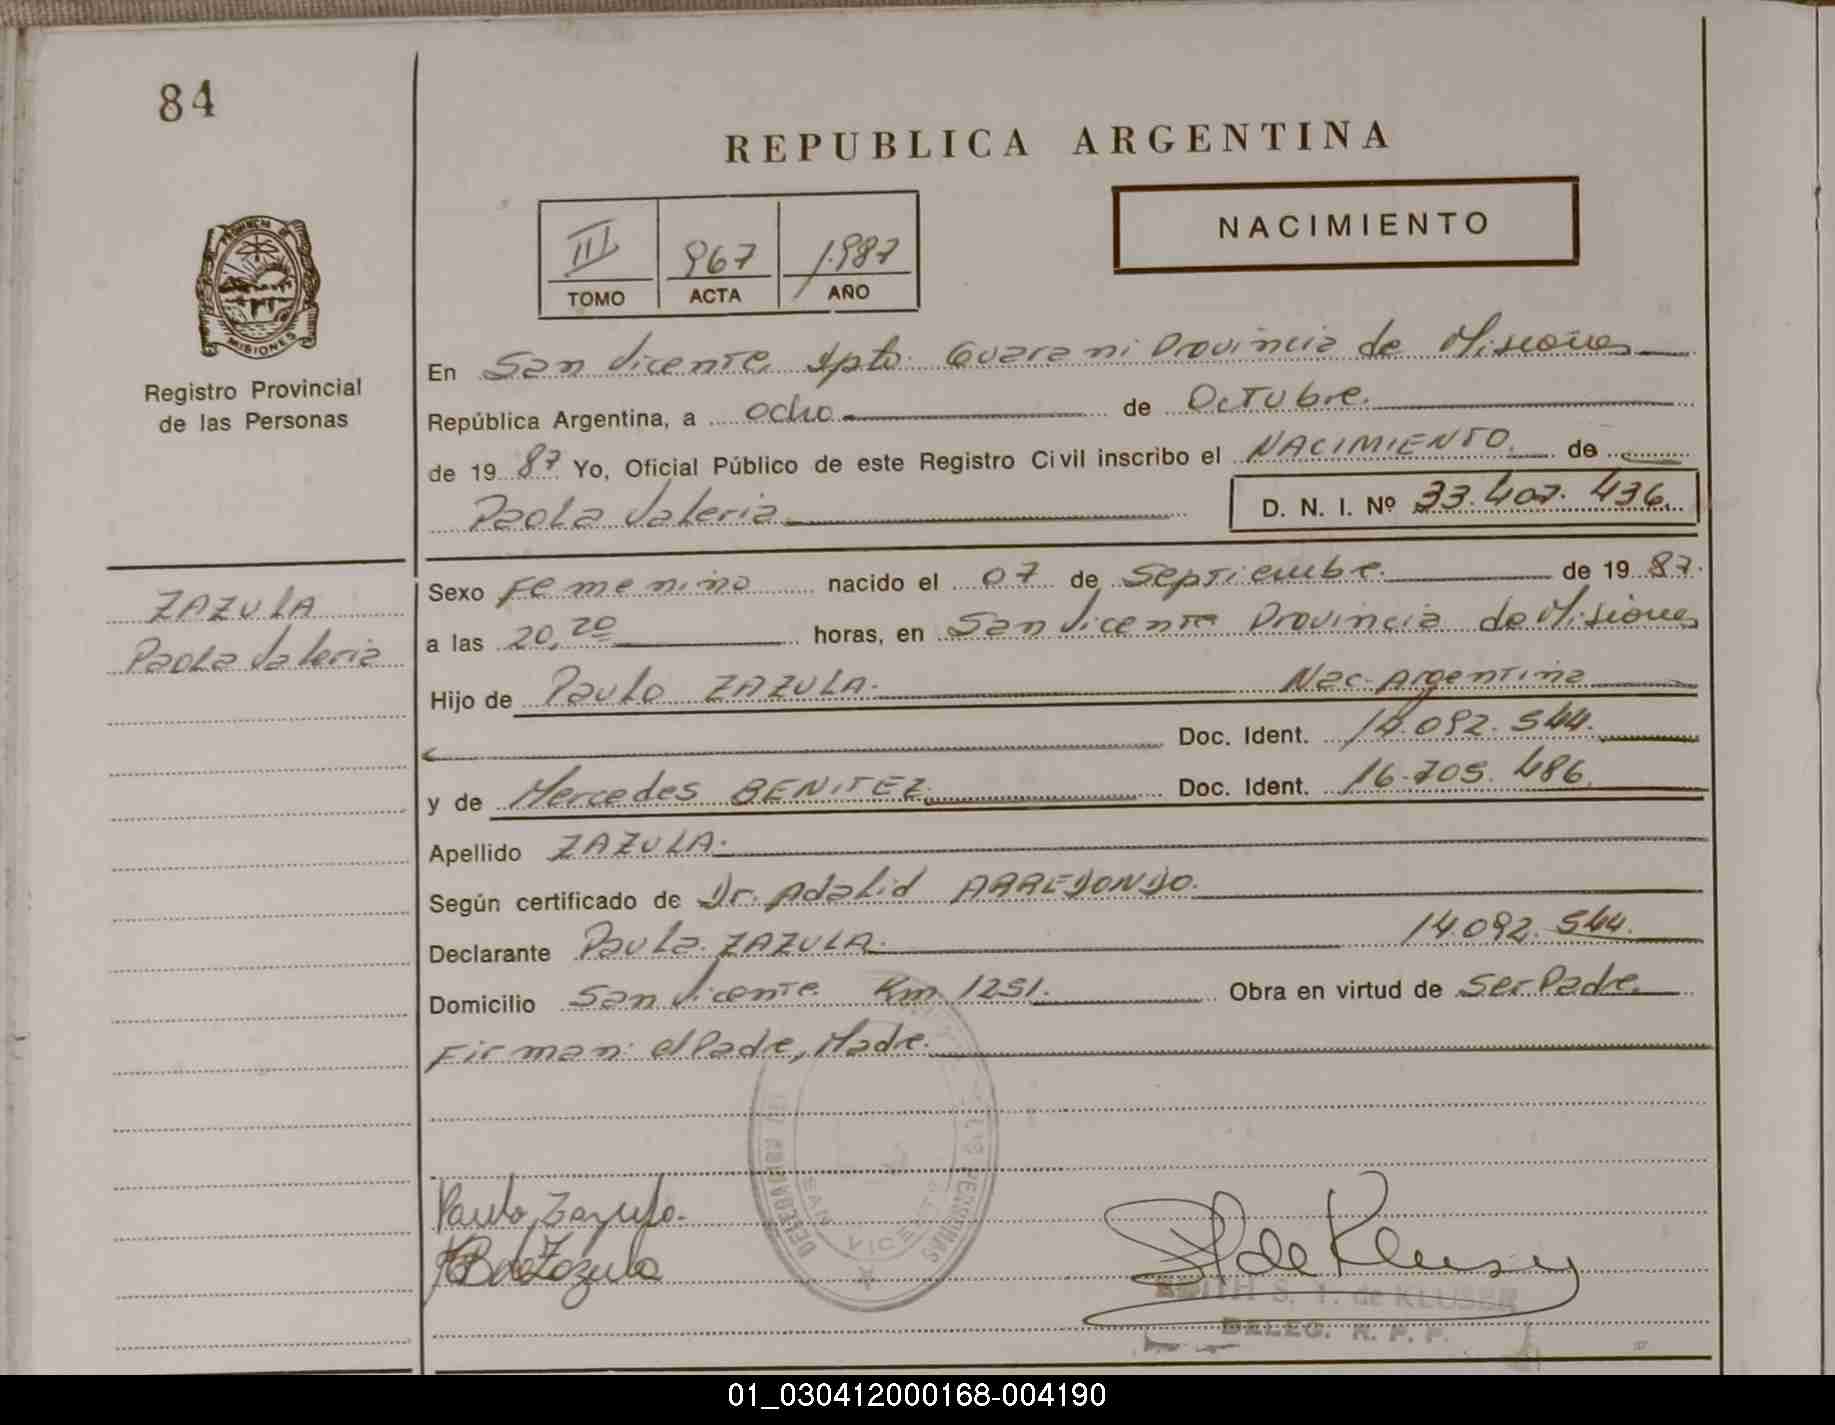 84
REPUBLICA ARGENTINA
III 967 1.987
TOMO ACTA AÑO
NACIMIENTO
PROVINCIA DE
MISIONES
Registro Provincial
de las Personas
En San Vicente, Dpto. Guarani Provincia de Misiones
República Argentina, a ocho de Octubre.
de 19 87 Yo, Oficial Público de este Registro Civil inscribo el NACIMIENTO. de
Paola Valeria D. N. I. Nº 33.407.436.
ZAZULA
Paola Valeria
Sexo Femenino nacido el 07 de Septiembre de 19 87.
a las 20,20 horas, en San Vicente Provincia de Misiones
Hijo de Paulo ZAZULA. Nac. Argentina
Doc. Ident. 14.092.544.
y de Mercedes BENITEZ. Doc. Ident. 16.705.486.
Apellido ZAZULA.
Según certificado de Dr. Adalid ARREDONDO.
Declarante Paulo ZAZULA. 14.092.544.
Domicilio San Vicente Km. 1251. Obra en virtud de ser Padre.
Firman: el Padre, Madre.
SAN VICENTE
Paulo Zazula.
B de Zazula
de Kluser
EDITH S. T. de KLUSER
DELEG. R. P. P.
01_030412000168-004190